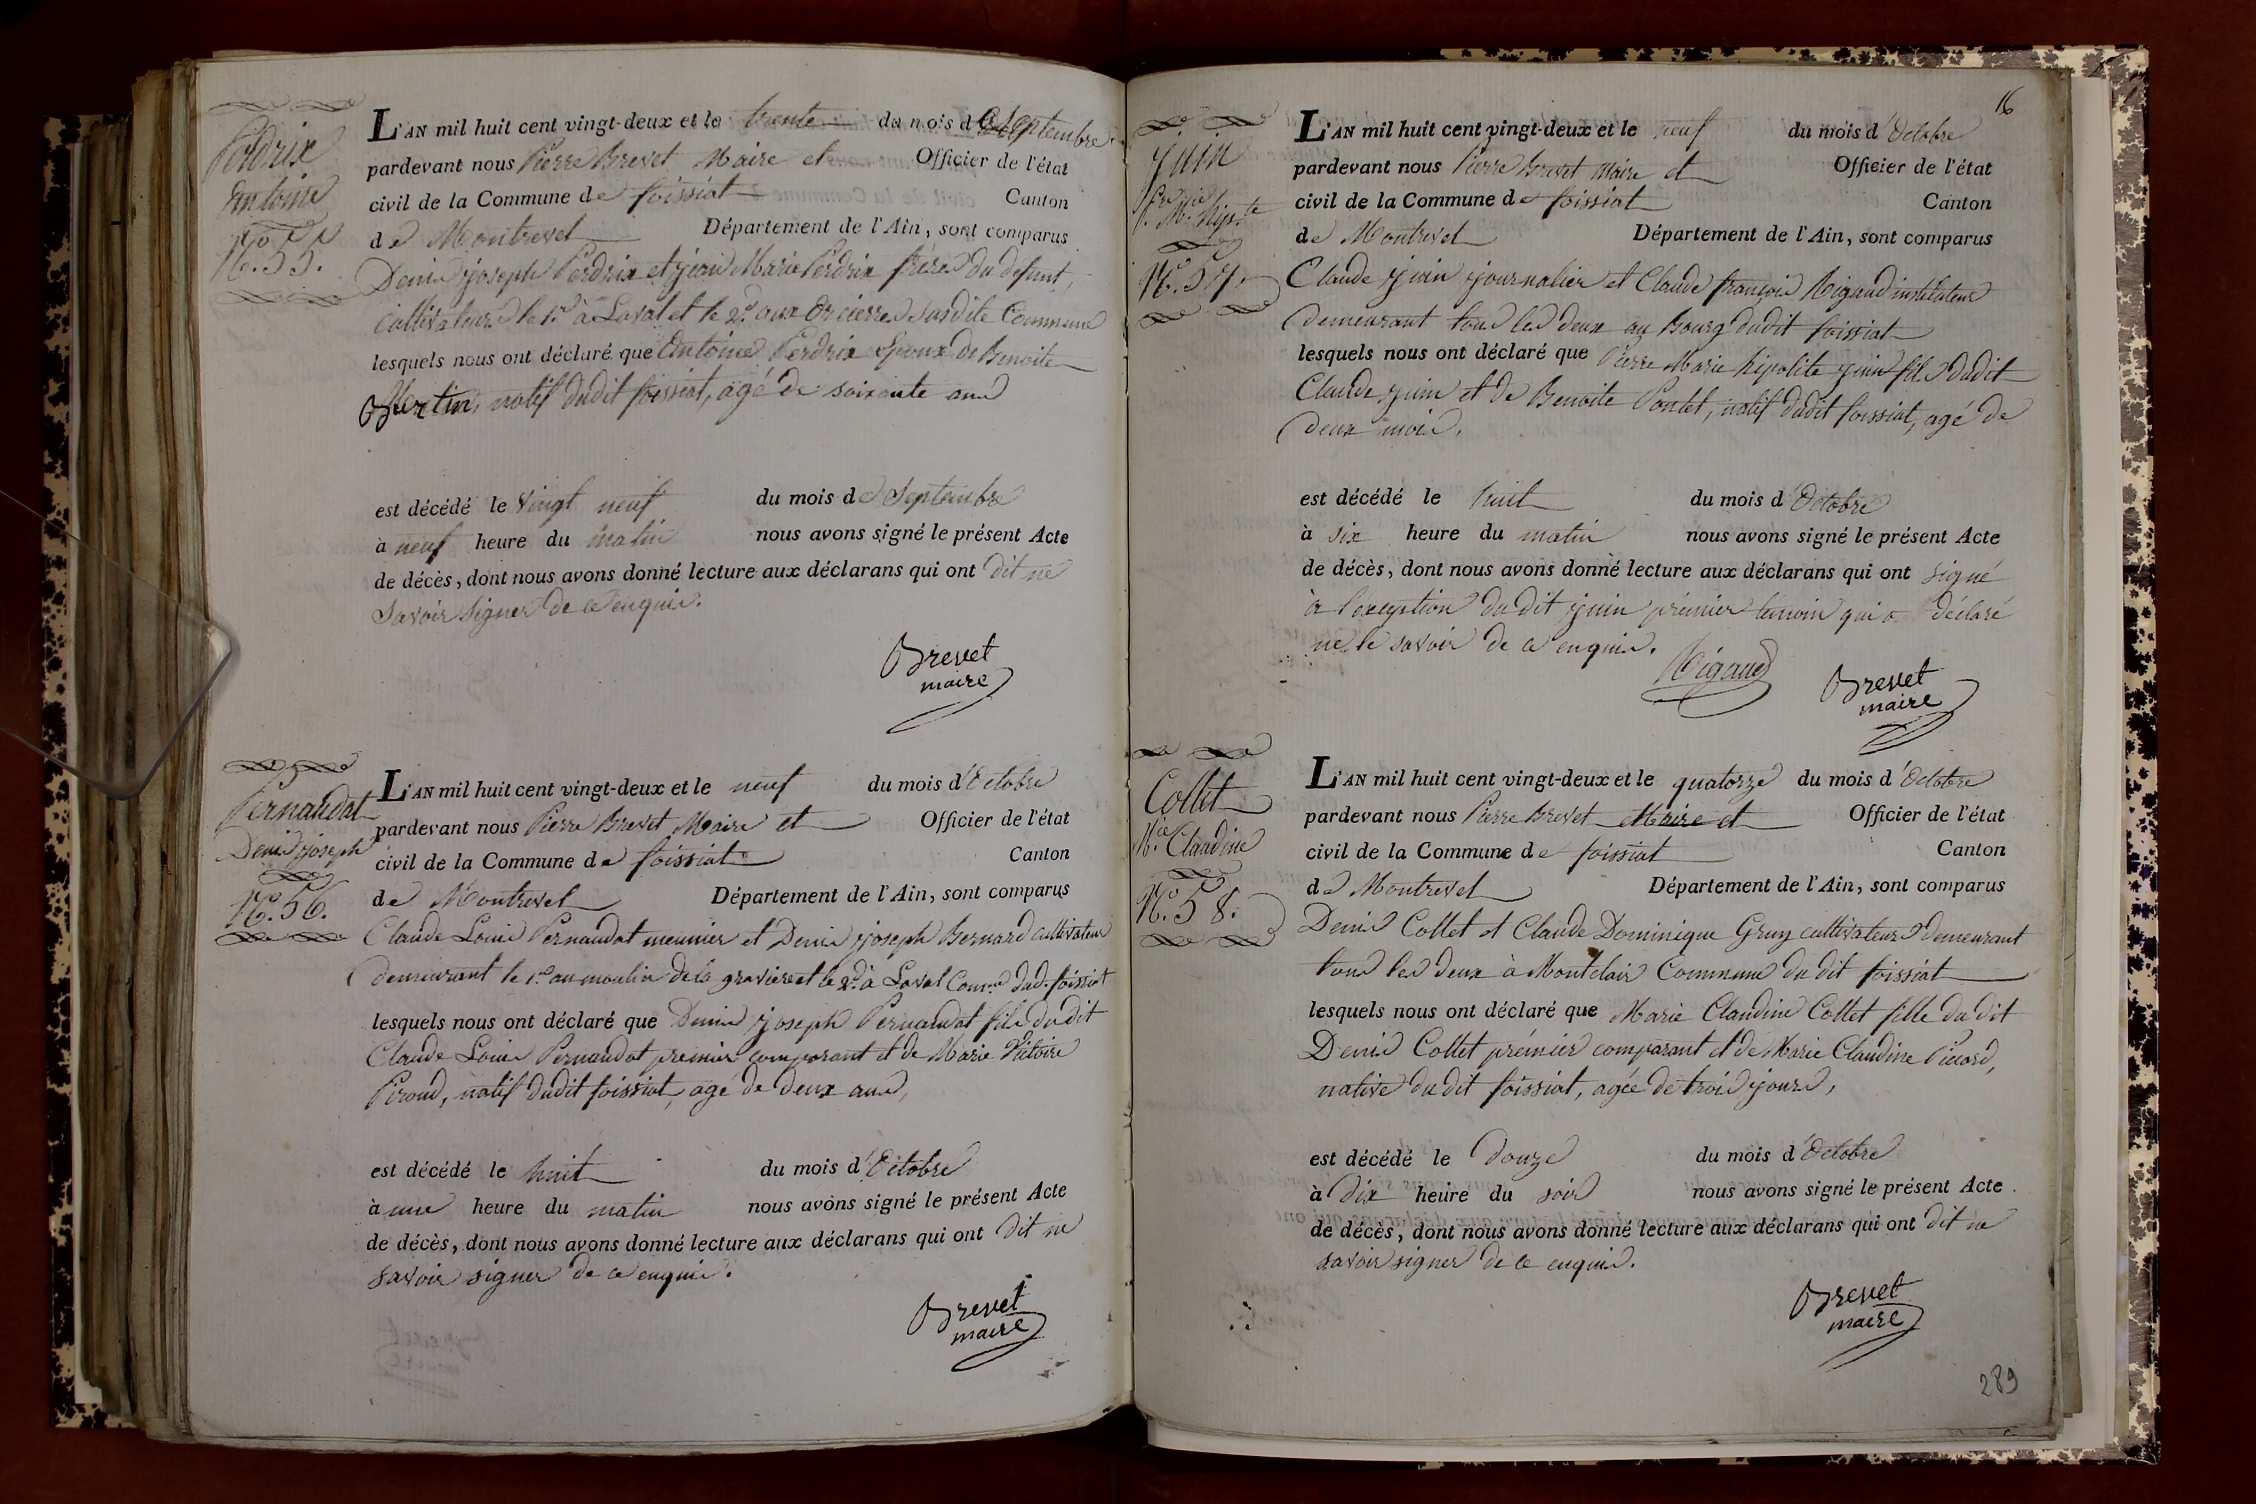 Perdrix
Antoine
N.º 55.
L'AN mil huit cent vingt-deux et le trente du mois de Septembre
pardevant nous Pierre Brevet Maire et Officier de l'état
civil de la Commune de foissiat Canton
de Montrevel Département de l'Ain, sont comparus
Denis joseph Perdrix et jean Marie Perdrix frères du defunt,
cultivateurs le 1.er à Laval et le 2.d aux Orcières susdite Commune
lesquels nous ont déclaré que Antoine Perdrix Epoux de Benoite
natif dudit foissiat, agé de soixante ans
est décédé le vingt neuf du mois de Septembre
à neuf heure du matin nous avons signé le présent Acte
de décès, dont nous avons donné lecture aux déclarans qui ont dit ne
savoir signer de ce enquis.
Brevet
maire
Pernaudat
Denis joseph
N.º 56.
L'AN mil huit cent vingt-deux et le neuf du mois d'Octobre
pardevant nous Pierre Brevet Maire et Officier de l'état
civil de la Commune de foissiat Canton
de Montrevel Département de l'Ain, sont comparus
Claude Louis Pernaudat meunier et Denis joseph Bernard cultivateur
demeurant le 1.er au moulin de la gravière et le 2.d à Laval Com.ne dud. foissiat
lesquels nous ont déclaré que Denis joseph Pernaudat fils du dit
Claude Louis Pernaudat premier comparant et de Marie Victoire
Piroud, natif dudit foissiat, agé de deux ans,
est décédé le huit du mois d'Octobre
à une heure du matin nous avons signé le présent Acte
de décès, dont nous avons donné lecture aux déclarans qui ont dit ne
savoir signer de ce enquis.
Brevet
maire
16
Juin
P. M. Hip.te
N.º 57.
L'AN mil huit cent vingt-deux et le neuf du mois d'Octobre
pardevant nous Pierre Brevet Maire et Officier de l'état
civil de la Commune de foissiat Canton
de Montrevel Département de l'Ain, sont comparus
Claude juin journalier et Claude françois Rigaud instituteur
demeurant tous les deux au Bourg dudit foissiat
lesquels nous ont déclaré que Pierre Marie hipolite juin fils dudit
Claude juin et de Benoite Pontet, natif dudit foissiat, agé de
deux mois.
est décédé le huit du mois d'Octobre
à six heure du matin nous avons signé le présent Acte
de décès, dont nous avons donné lecture aux déclarans qui ont signé
à l'exception du dit juin prémier témoin qui a déclaré
ne le savoir de ce enquis.
Rigaud
Brevet
maire
Collet
M.ie Claudine
N.º 58.
L'AN mil huit cent vingt-deux et le quatorze du mois d'Octobre
pardevant nous Pierre Brevet Maire et Officier de l'état
civil de la Commune de foissiat Canton
de Montrevel Département de l'Ain, sont comparus
Denis Collet et Claude Dominique Gruy cultivateurs demeurant
tous les deux à Montclair Commune du dit foissiat
lesquels nous ont déclaré que Marie Claudine Collet fille du dit
Denis Collet prémier comparant et de Marie Claudine Picard,
native du dit foissiat, agée de trois jours,
est décédé le douze du mois d'Octobre
à dix heure du soir nous avons signé le présent Acte
de décès, dont nous avons donné lecture aux déclarans qui ont dit ne
savoir signer de ce enquis.
Brevet
maire
289